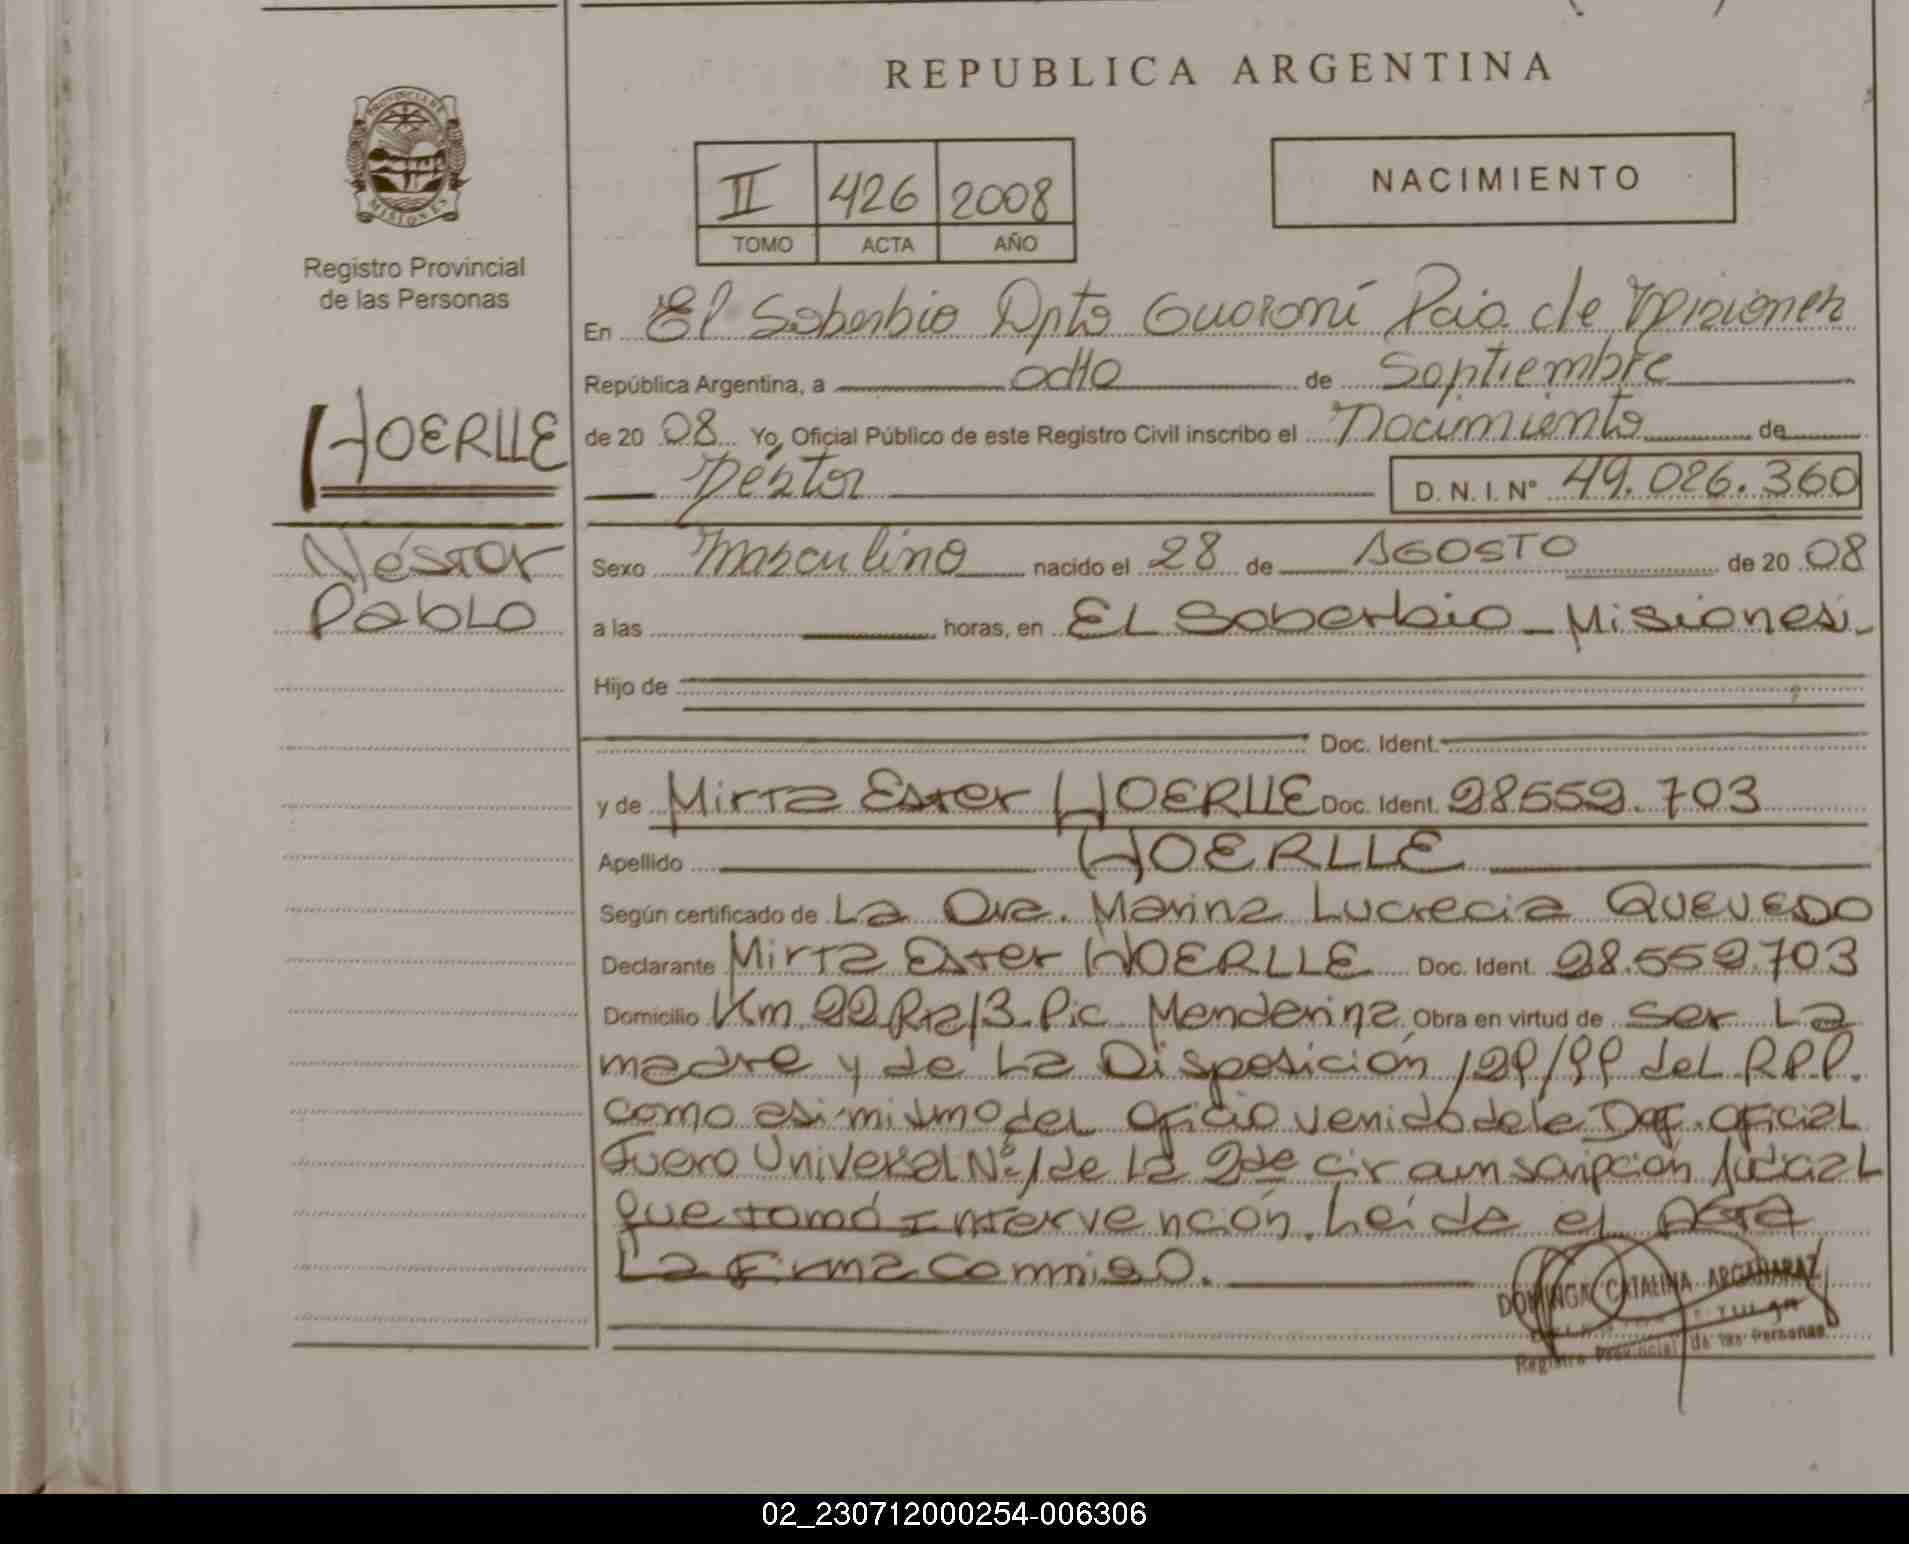 REPUBLICA ARGENTINA
PROVINCIA DE
MISIONES
Registro Provincial
de las Personas
II 426 2008
TOMO ACTA AÑO
NACIMIENTO
HOERLLE
Néstor
Pablo
En El Soberbio Dpto Guaraní Pcia de Misiones
República Argentina, a ocho de Septiembre
de 20 08 Yo, Oficial Público de este Registro Civil inscribo el Nacimiento de
Néstor D. N. I. N° 49.026.360
Sexo Masculino nacido el 28 de AGOSTO de 20 08
a las horas, en EL Soberbio - Misiones.-
Hijo de
Doc. Ident.
y de Mirta Ester HOERLLE Doc. Ident. 28559.703
Apellido HOERLLE
Según certificado de La Dra. Marina Lucrecia QUEVEDO
Declarante Mirta Ester HOERLLE Doc. Ident. 28.559.703
Domicilio Km 22 Rta 13 Pic Obra en virtud de ser La
madre y de La Disposición del R.P.P.
como asi mismo del oficio venido de le Def. oficial
Fuero Universal Nº 1 de la 2da circunscripción Judicial
que tomó Intervención. Leída el Acta
La firma conmigo.
DOMINGA CATALINA ARGAÑARAZ
Registro Provincial de las Personas
02_230712000254-006306